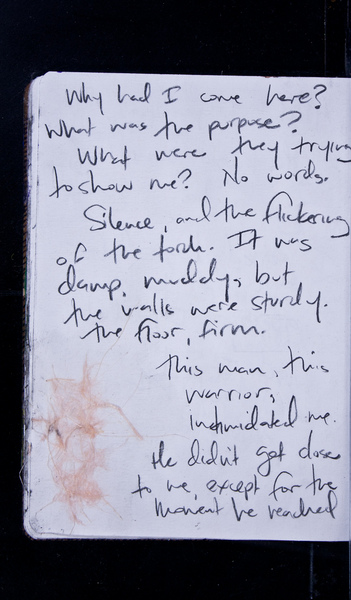 Why had I come here?
What was the purpose?
What were they trying
to show me? No words.
Silence, and the flickering
of the torch. It was
damp, muddy, but
the walls were sturdy.
the floor, firm.
this man, this
warrior,
intimidated me.
He didn't get close
to me, except for the
moment he reached